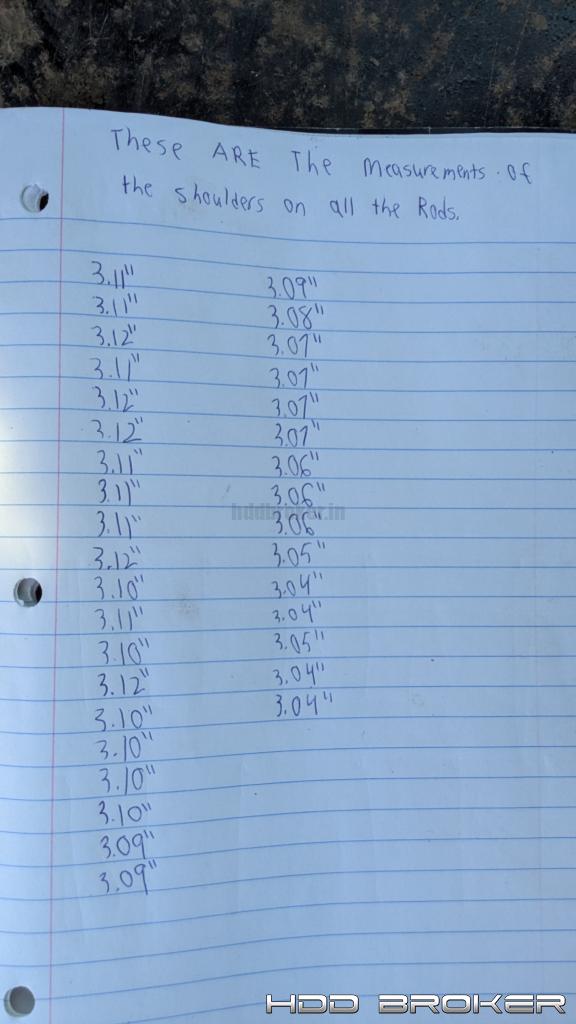 These ARE The Measurements of
the shoulders on all the Rods.
3.11"
3.11"
3.12"
3.11"
3.12"
3.12"
3.11"
3.11"
3.11"
3.12"
3.10"
3.11"
3.10"
3.12"
3.10"
3.10"
3.10"
3.10"
3.09"
3.09"
3.09"
3.08"
3.07"
3.07"
3.07"
3.07"
3.06"
3.06"
3.06"
3.05"
3.04"
3.04"
3.05"
3.04"
3.04"
hddbroker.in
HDD BROKER